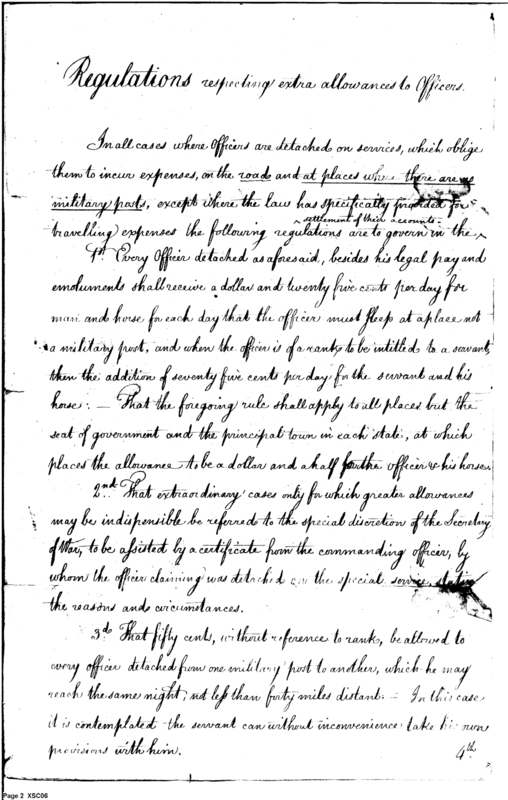 Regulations respecting extra allowances to Officers.
In all cases where Officers are detached on services, which oblige
them to incur expenses, on the road and at places where there are no
military posts, except where the law has specifically provided for
settlement of their accounts.
travelling expenses the following regulations are to govern in the ^
1st Every Officer detached as aforesaid, besides his legal pay and
emoluments shall receive a dollar and twenty five cents per day for
man and horse for each day that the officer must sleep at a place not
a military post, and when the officer is of a rank to be intitled to a servant,
then the addition of seventy five cents per day for the servant and his
horse. — That the foregoing rule shall apply to all places but the
seat of government and the principal town in each state, at which
places the allowance to be a dollar and a half for the officer & his horse.
2nd That extraordinary cases only for which greater allowances
may be indispensible be referred to the special discretion of the Secretary
of War, to be assisted by a certificate from the commanding officer, by
whom the officer claiming was detached on the special service, stating
the reasons and circumstances.
3d That fifty cents, without reference to rank, be allowed to
every officer detached from one military post to another, which he may
reach the same night, not less than forty miles distant. — In this case
it is contemplated the servant can without inconvenience take his own
provisions with him.
4th
Page 2 XSC06